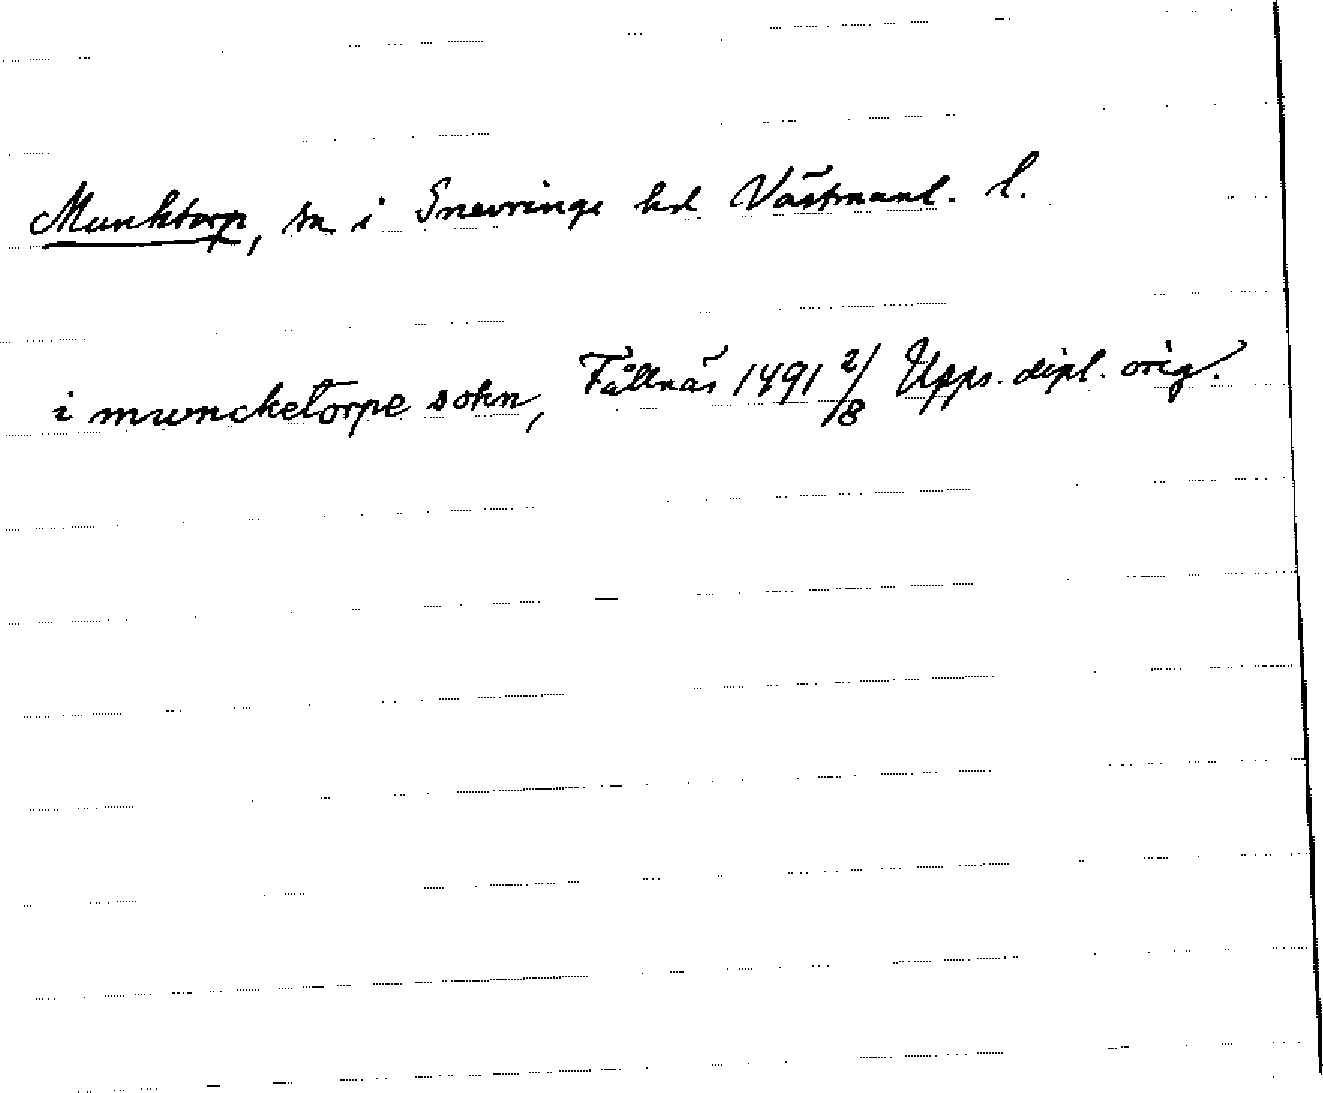 Munktorp, sn i Snevringe hd Västmanl. l.
i muncketorpe sokn, Fållnäs 1491 2/8 Upps. dipl. orig.